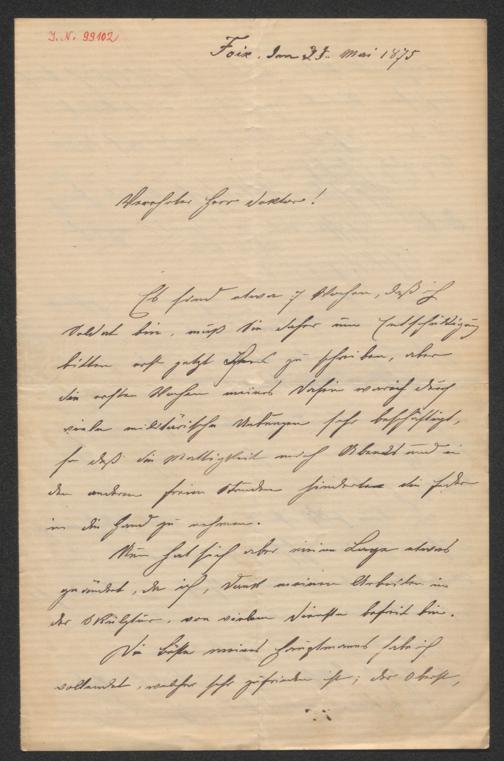 J. N. 99102
Foix, den 23. Mai 1875
Verehrter Herr Doktor!
Es sind etwa 7 Wochen, daß ich
Soldat bin, muß Sie daher um Entschuldigung
bitten erst jetzt Ihnen zu schreiben, aber
die ersten Wochen meines Daseins war ich durch
viele militärische Uebungen sehr beschäftigt,
so daß die Mattigkeit mich Abends und in
den anderen freien Stunden hinderte die Feder
in die Hand zu nehmen.
Nun hat sich aber meine Lage etwas
geändert, da ich, Dank meinen Arbeiten in
der Skulptur, von vielem Dienste befreit bin.
Die Büste meines Hauptmanns habe ich
vollendet, welcher sehr zufrieden ist; der Oberst,